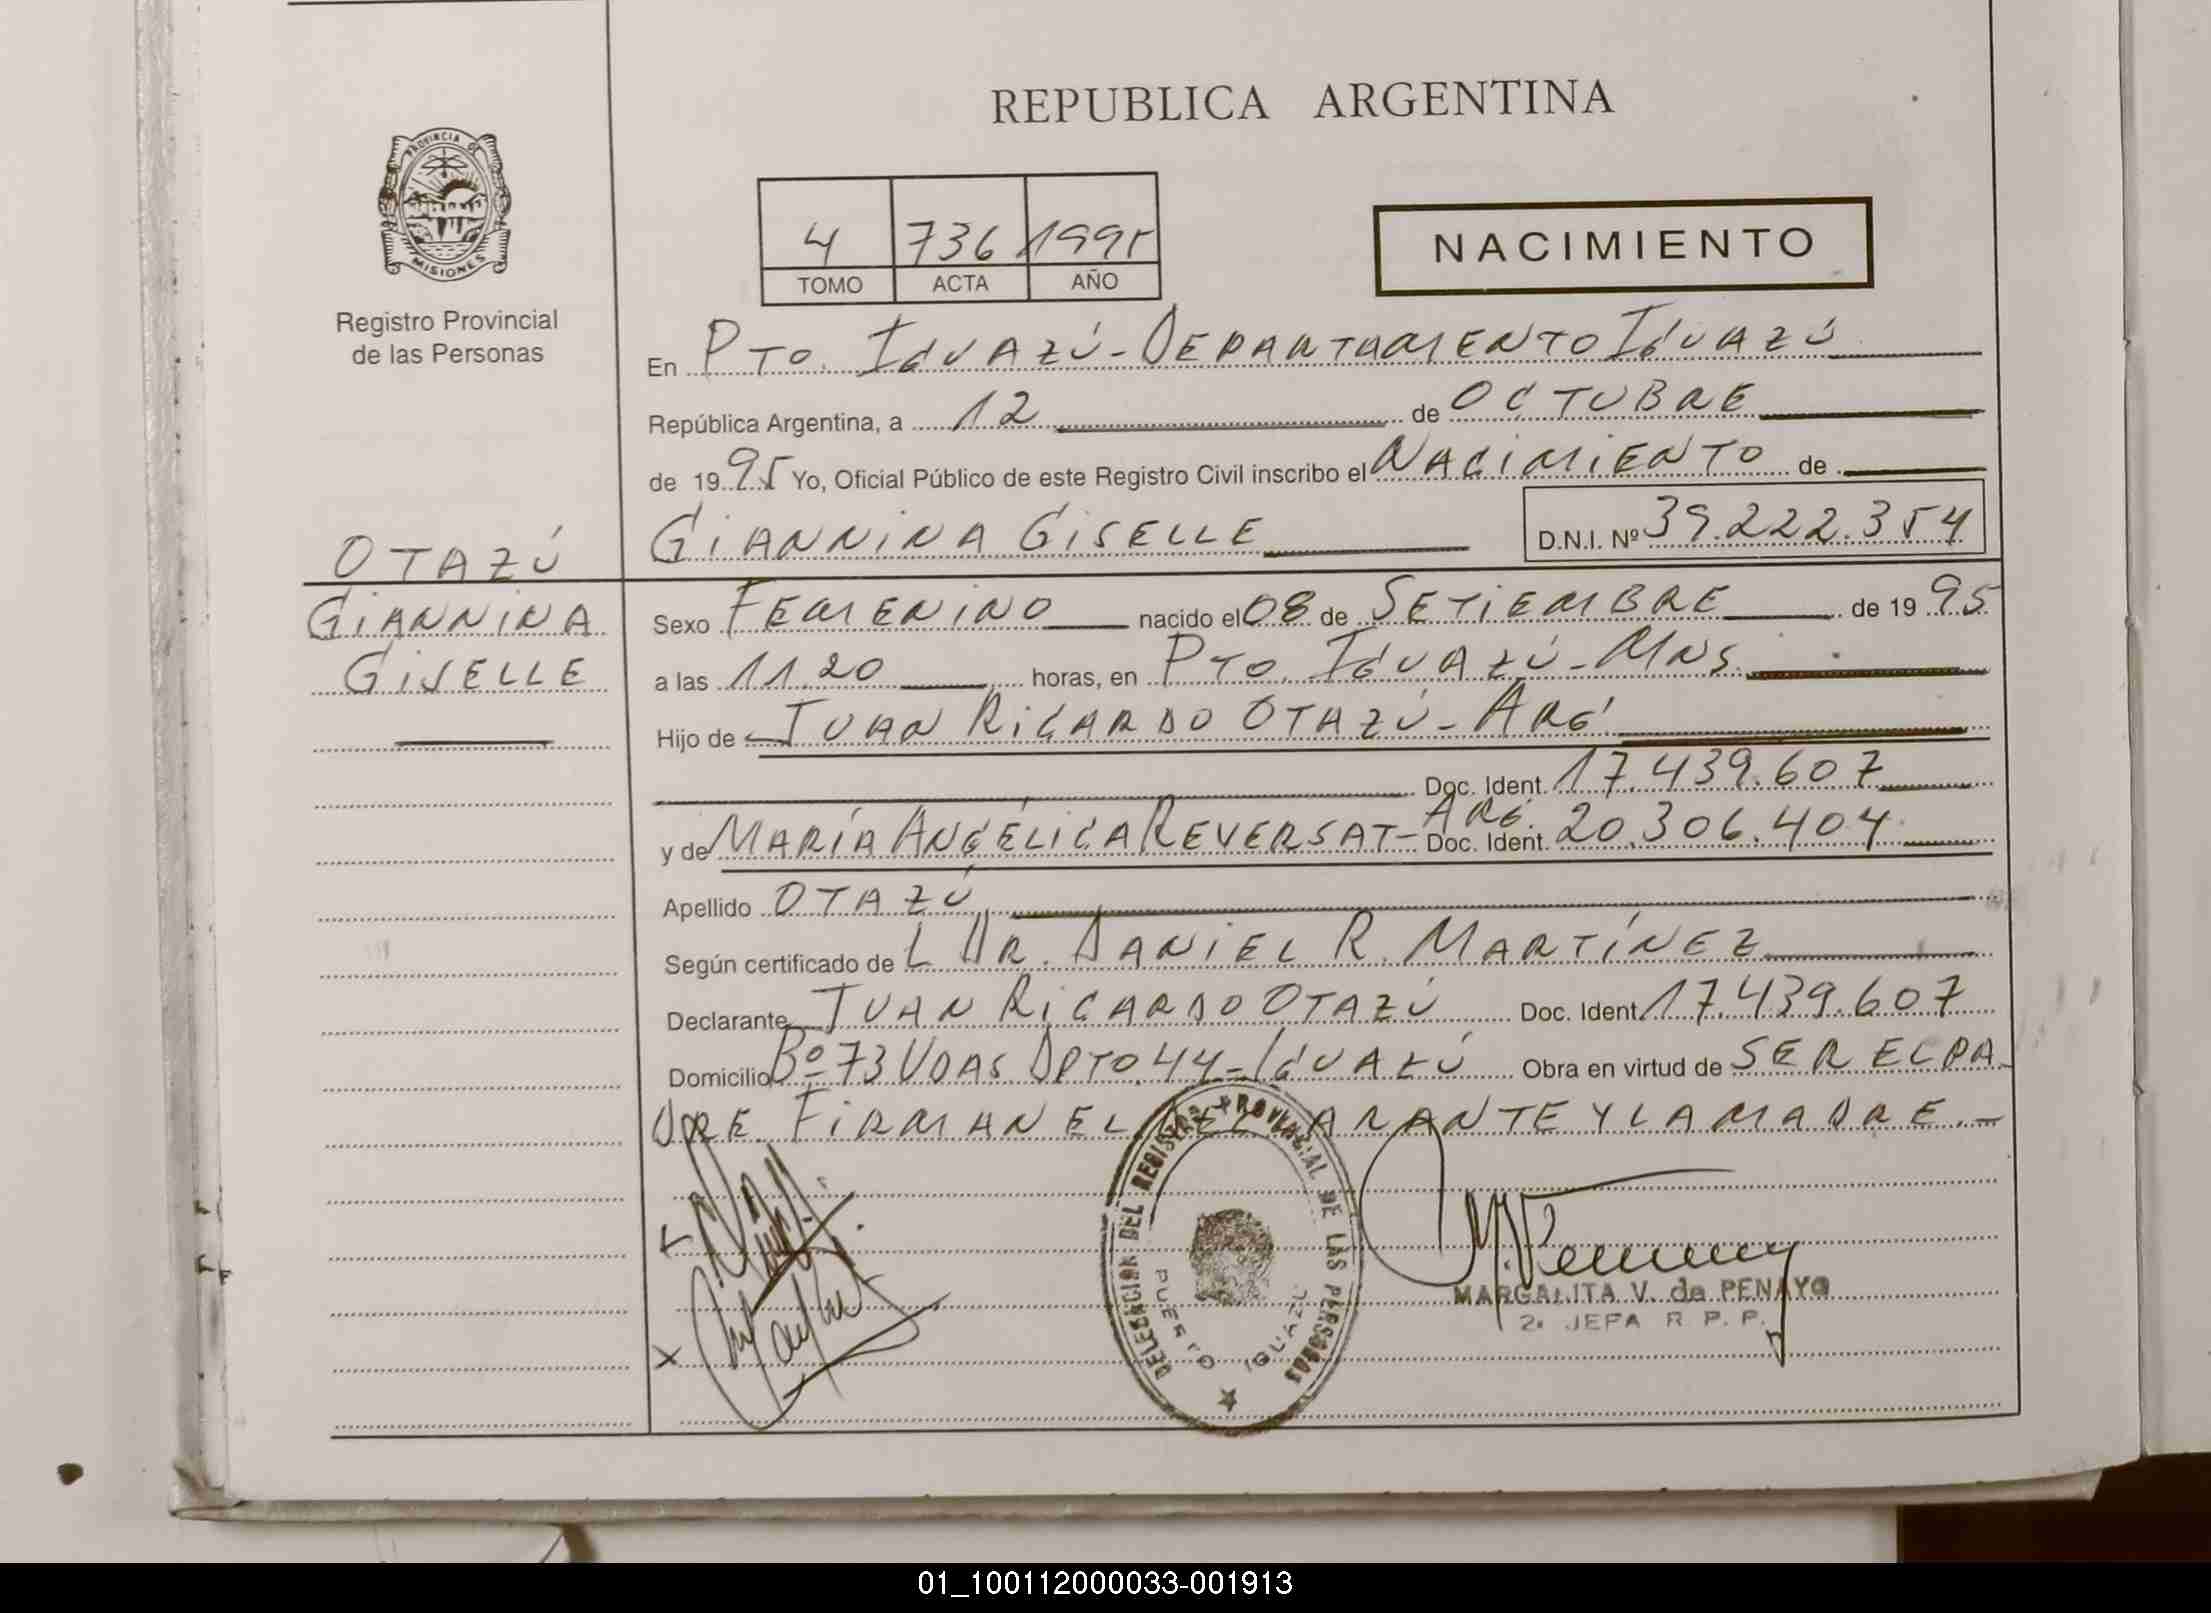 REPUBLICA ARGENTINA
PROVINCIA DE
MISIONES
Registro Provincial
de las Personas
4 736 1995
TOMO ACTA AÑO
NACIMIENTO
En PTO. IGUAZÚ - DEPARTAMENTO IGUAZÚ
República Argentina, a 12 de OCTUBRE
de 1995 Yo, Oficial Público de este Registro Civil inscribo el NACIMIENTO de
GIANNINA GISELLE D.N.I. Nº 39.222.354
OTAZÚ
GIANNINA
GISELLE
Sexo FEMENINO nacido el 08 de SETIEMBRE de 1995
a las 11.20 horas, en PTO. IGUAZÚ - MNS.
Hijo de JUAN RICARDO OTAZÚ - ARG.
Doc. Ident. 17.439.607
y de MARÍA ANGÉLICA REVERSAT - ARG. Doc. Ident. 20.306.404
Apellido OTAZÚ
Según certificado de L DR. DANIEL R. MARTÍNEZ
Declarante JUAN RICARDO OTAZÚ Doc. Ident. 17.439.607
Domicilio Bº 73 VDAS DPTO. 44 - IGUAZÚ Obra en virtud de SER EL PA-
DRE. FIRMAN EL DECLARANTE Y LA MADRE. -
DELEGACION DEL REGISTRO PROVINCIAL DE LAS PERSONAS
PUERTO IGUAZU
MARGARITA V. de PENAYO
2ª JEFA R. P. P.
01_100112000033-001913